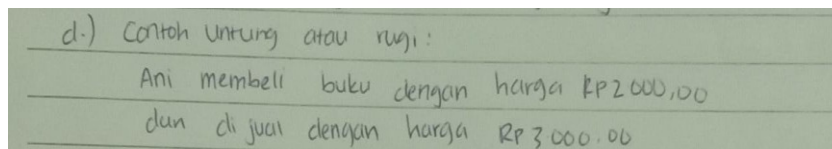 d.) Contoh untung atau rugi:
Ani membeli buku dengan harga RP2000,00
dan di jual dengan harga RP 3000.00